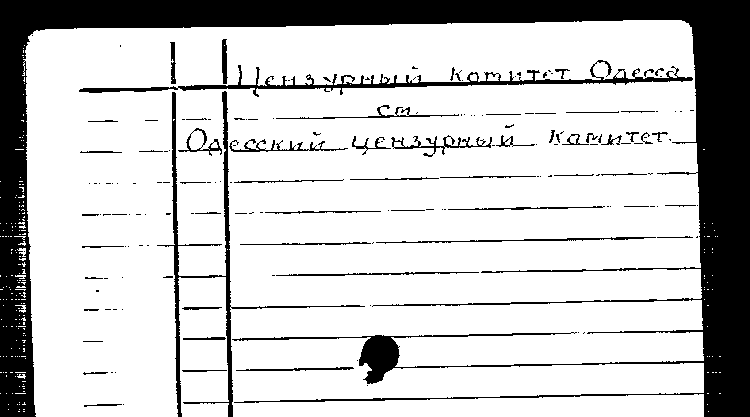 Цензурный комитет Одесса
см.
Одесский цензурный комитет.